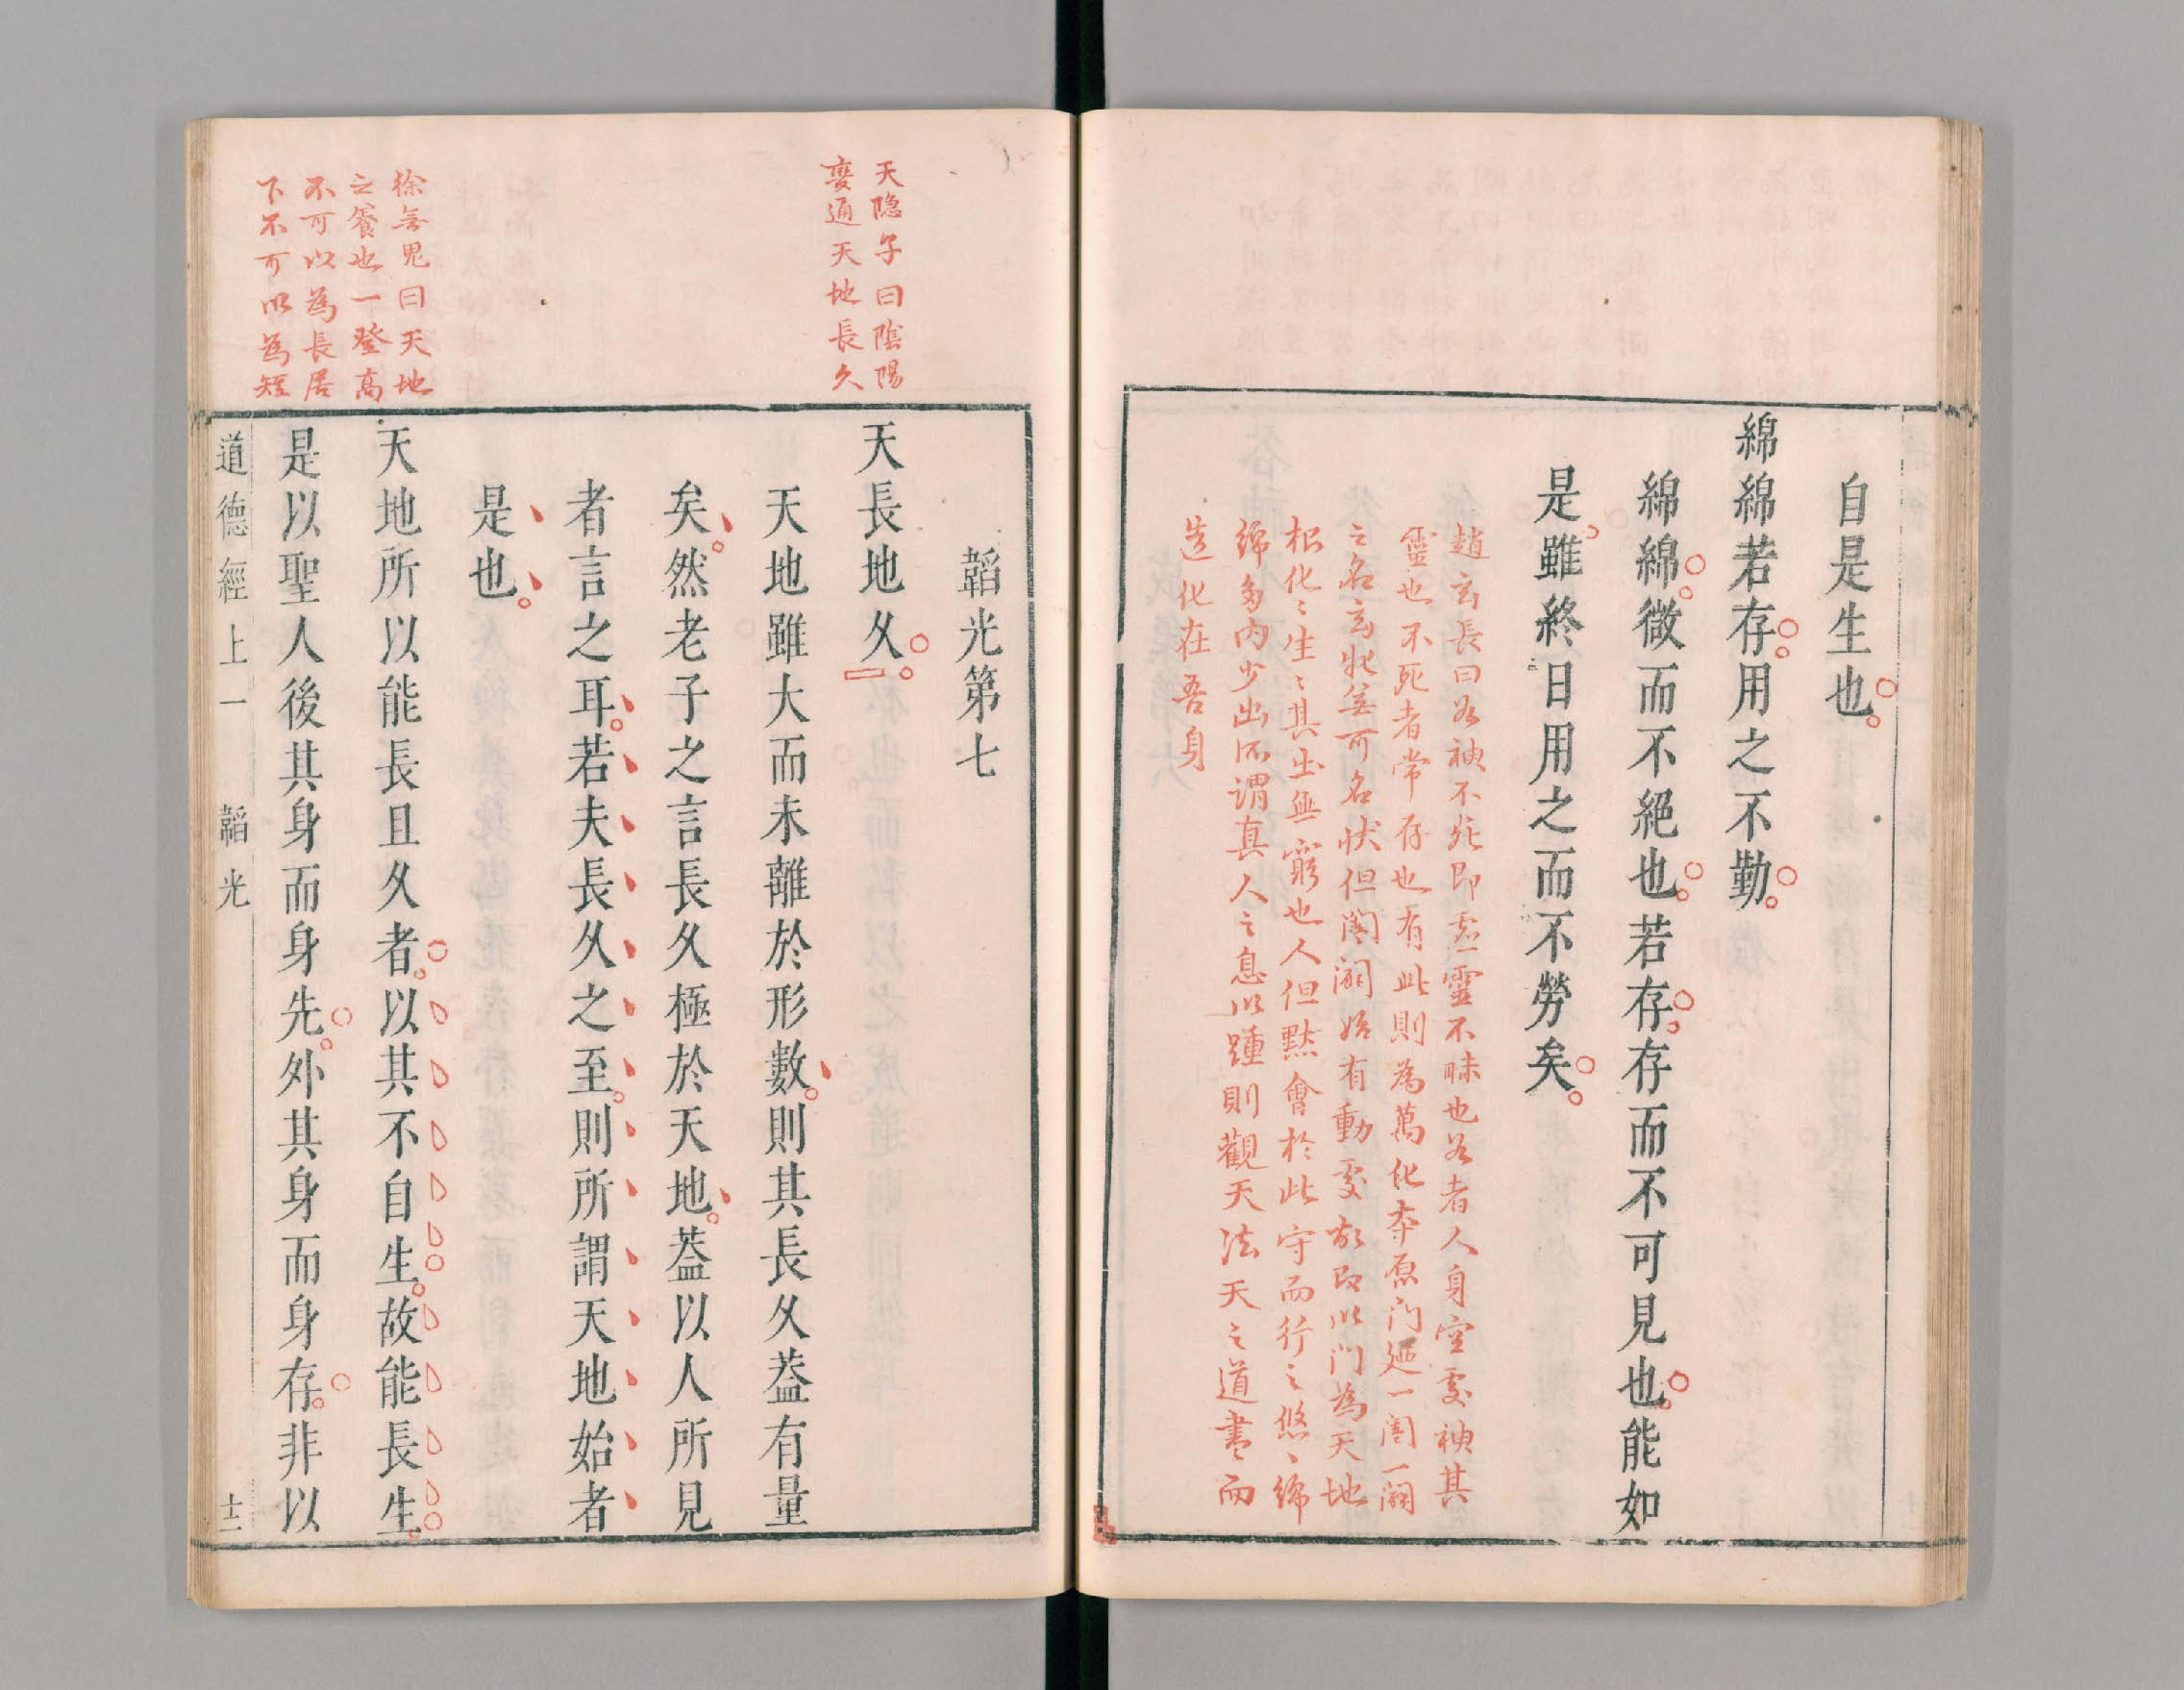 自是生也
綿綿若存用之不勤
綿綿微而不絕也若存存而不可見也能如
是雖終日用之而不勞矣
趙玄長曰谷神不死即虛靈不昧也谷者人身空處神其
靈也不死者常存也有此則為萬化本原門迺一闔一闢
之名玄牝并可名狀但闔闢始有動處故即此門為天地
根化〻生〻其出無窮也人但默會於此守而行之悠〻綿
綿多内少出所謂真人之息以踵則觀天法天之道盡而
造化在吾身
天隐子曰陰陽
變通天地長久
韜光第七
天長地久
天地雖大而未離於形數則其長久葢有量
矣然老子之言長久極於天地葢以人所見
者言之耳若夫長久之至則所謂天地始者
是也
徐無鬼曰天地
之養也一登高
不可以為長居
下不可以為短
天地所以能長且久者以其不自生故能長生
是以聖人後其身而身先外其身而身存非以
道德經上一 韜光 十二